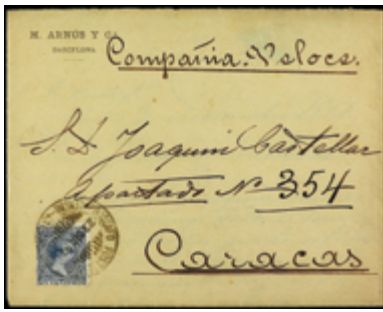 M. ARNÚS Y C.
BARCELONA
Compañia. Veloce.
S. D. Joaquin Castellar
Apartado Nº 354
Caracas